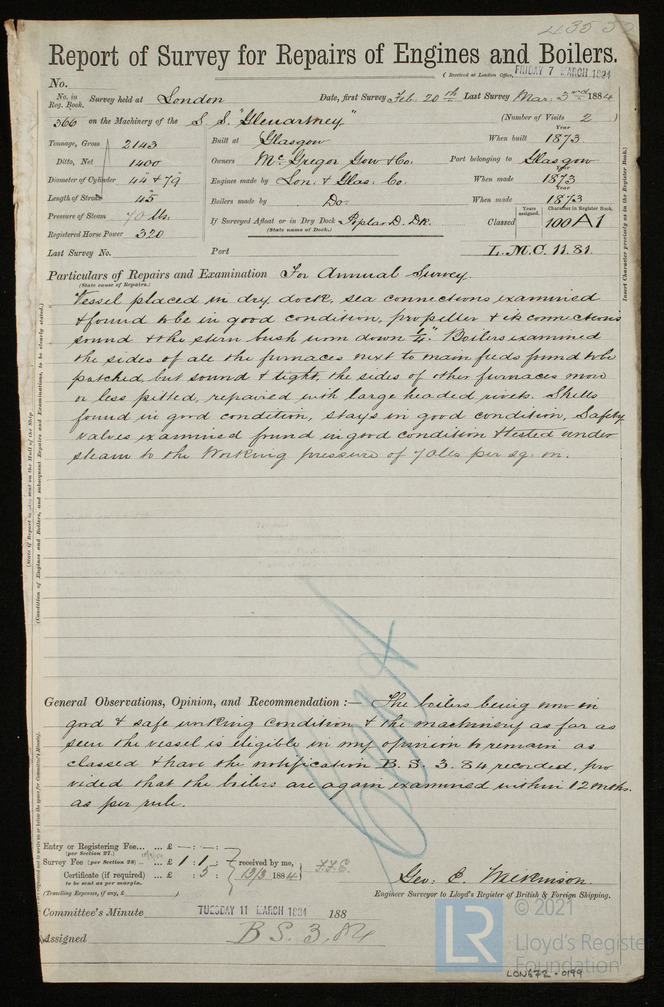 43550
Report of Survey for Repairs of Engines and Boilers.
(Received at London Office, FRIDAY 7 MARCH 1884
No.
No. in Reg. Book. Survey held at London Date, first Survey Feb. 20th Last Survey Mar. 3rd 1884
366 on the Machinery of the S.S. "Glenartney" (Number of Visits 2 )
Tonnage, Gross 2143 Built at Glasgow When built Year 1873
Ditto, Net 1400 Owners Mc Gregor Gow & Co. Port belonging to Glasgow
Diameter of Cylinder 44 & 79 Engines made by Lon. & Glas. Co. When made Year 1873
Length of Stroke 45 Boilers made by Do. When made Year 1873
Pressure of Steam 70 lbs. If Surveyed Afloat or in Dry Dock Poplar D. Dk. Classed Years assigned. Character in Register Book. 100 A1
(State name of Dock.)
Registered Horse Power 320
Last Survey No. Port L.M.C. 11.81.
Insert Character precisely as in the Register Book.)
Particulars of Repairs and Examination For Annual Survey.
(State cause of Repairs.)
Vessel placed in dry dock, sea connections examined
& found to be in good condition, propeller & its connections
sound & the stern bush worn down ¼". Boilers examined
the sides of all the furnaces next to main feeds found to be
patched but sound & tight, the sides of other furnaces more
or less pitted, repaired with large headed rivets. Shells
found in good condition, stays in good condition, Safety
valves examined found in good condition & tested under
steam to the Working pressure of 70 lbs per sq. in.
General Observations, Opinion, and Recommendation :— The boilers being now in
good & safe working condition & the machinery as far as
seen the vessel is eligible in my opinion to remain as
classed & have the notification B.S. 3.84 recorded, pro
vided that the boilers are again examined within 12 months.
as per rule.
Entry or Registering Fee... ... £ — : — : —
(per Section 27.)
Survey Fee (per Section 28) ... £ 1 : 1 : — received by me,
Certificate (if required) ... £ : 5 : 12/3 1884
to be sent as per margin.
(Travelling Expenses, if any, £ )
Geo: E.
Engineer Surveyor to Lloyd's Register of British & Foreign Shipping.
Committee's Minute TUESDAY 11 MARCH 1884 188
Assigned B S. 3.84
© 2021
LR Lloyd's Register
Foundation
LON672-0199